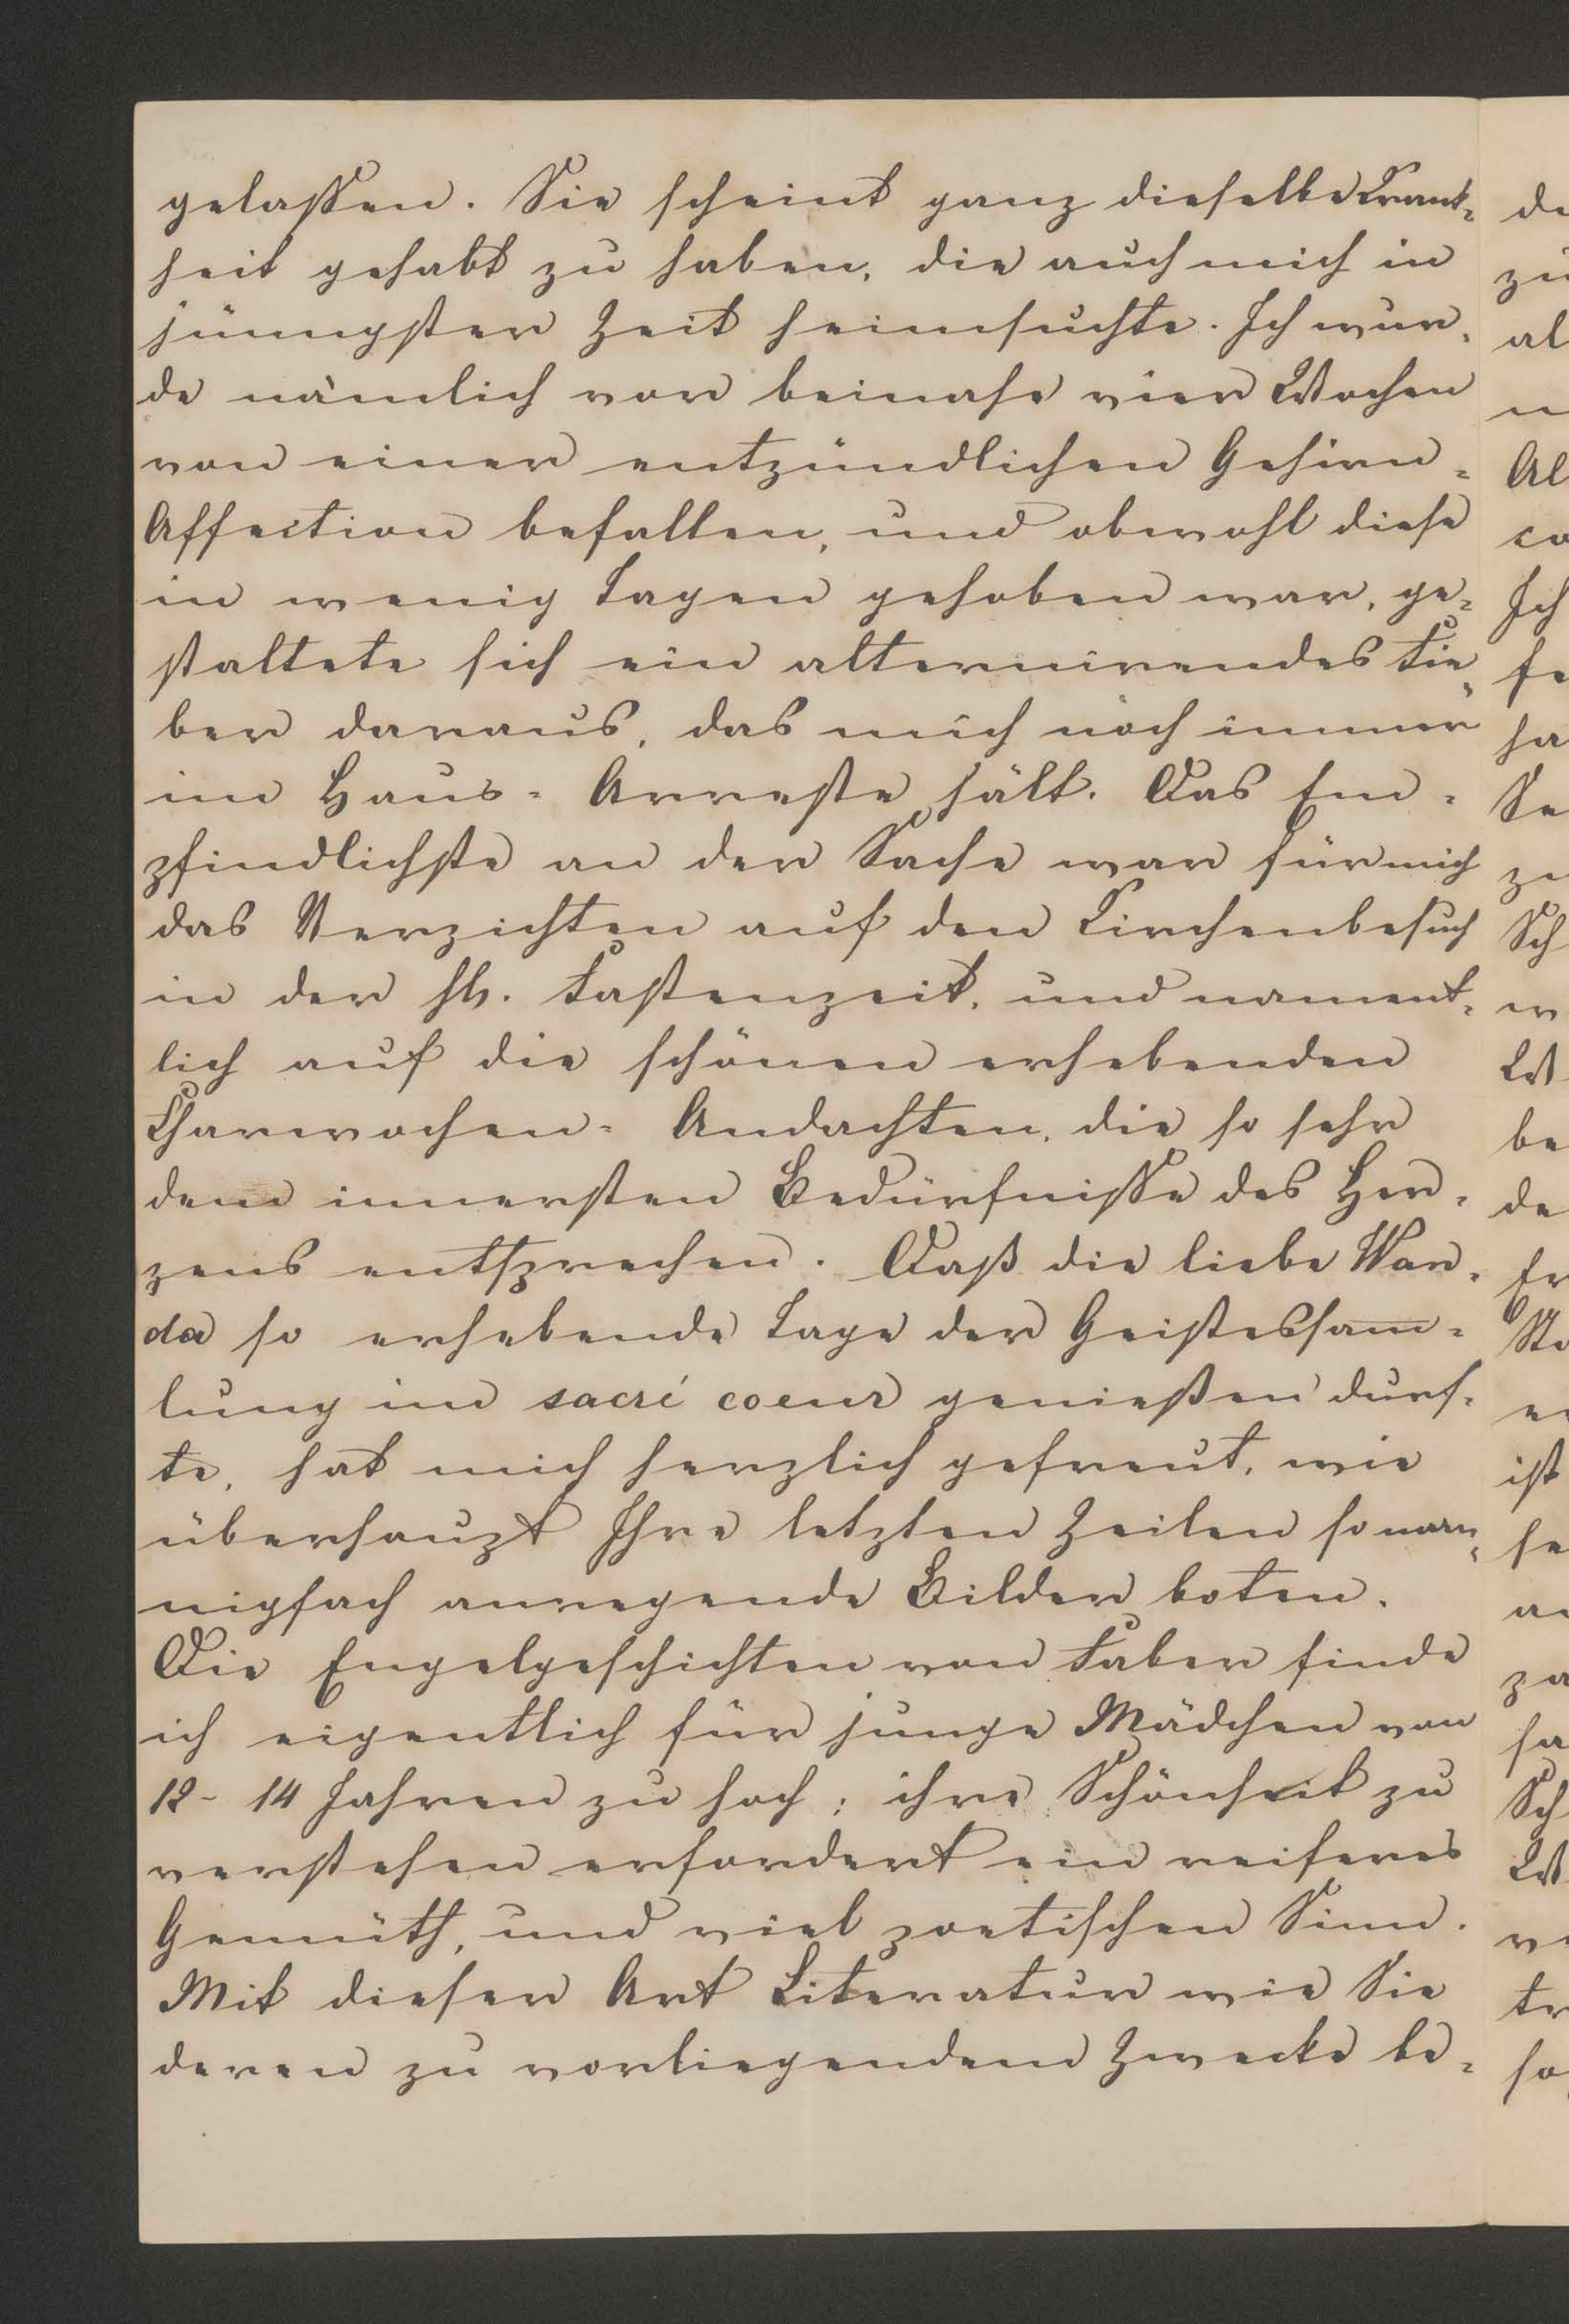 gelassen. Sie scheint ganz dieselbe Krank-
heit gehabt zu haben, die auch mich in
jüngster Zeit heimsuchte. Ich wur-
de nämlich vor beinahe vier Wochen
von einer entzündlichen Gehirn-
Affection befallen, und obwohl diese
in wenig Tagen gehoben war, ge-
staltete sich ein alternirendes Fie-
ber daraus, das mich noch immer
im Haus-Arreste hält. Das Em-
pfindlichste an der Sache war für mich
das Verzichten auf den Kirchenbesuch
in der hl. Fastenzeit, und nament-
lich auf die schönen erhebenden
Charwochen-Andachten, die so sehr
dem innersten Bedürfnisse des Her-
zens entsprechen. Daß die liebe Wan-
da so erhebende Tage der Geistessam̅-
lung im sacré coeur genießen durf-
te, hat mich herzlich gefreut, wie
überhaupt Ihre letzten Zeilen so man-
nigfach anregende Bilder boten.
Die Engelgeschichten von Faber finde
ich eigentlich für junge Mädchen von
12-14 Jahren zu hoch; ihre Schönheit zu
verstehen erfordert ein reiferes
Gemüth, und viel poetischen Sinn.
Mit dieser Art Literatur wie Sie
deren zu vorliegendem Zwecke be-